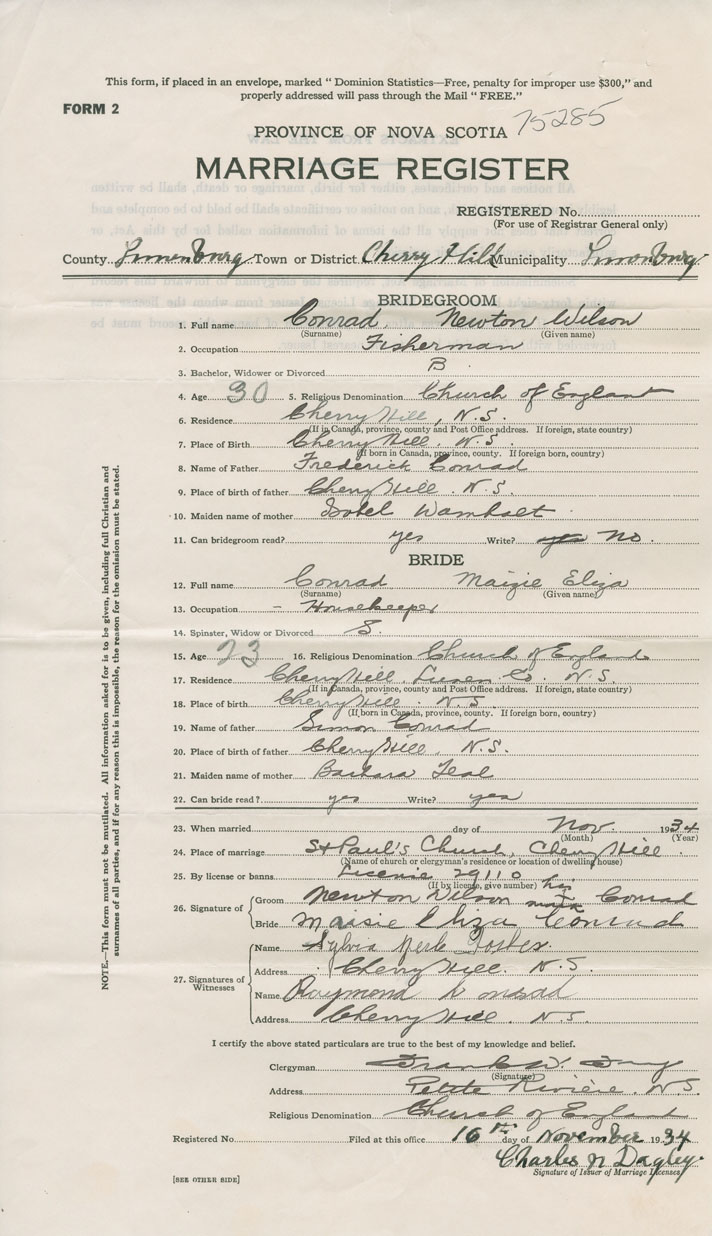 This form, if placed in an envelope, marked " Dominion Statistics—Free, penalty for improper use $300," and
properly addressed will pass through the Mail " FREE."
FORM 2
75285
PROVINCE OF NOVA SCOTIA
MARRIAGE REGISTER
REGISTERED No.
(For use of Registrar General only)
County Lunenburg Town or District Cherry Hill Municipality Lunenburg
BRIDEGROOM
1. Full name Conrad Newton Wilson
(Surname) (Given name)
2. Occupation Fisherman
3. Bachelor, Widower or Divorced B
4. Age 30 5. Religious Denomination Church of England
6. Residence Cherry Hill, N.S.
(If in Canada, province, county and Post Office address. If foreign, state country)
7. Place of Birth Cherry Hill. N.S.
(If born in Canada, province, county. If foreign born, country)
8. Name of Father Frederick Conrad
9. Place of birth of father Cherry Hill. N.S.
10. Maiden name of mother Isobel Wamholt
11. Can bridegroom read? yes Write? yes no.
BRIDE
12. Full name Conrad Maizie Eliza
(Surname) (Given name)
13. Occupation – Housekeeper
14. Spinster, Widow or Divorced S.
15. Age 23 16. Religious Denomination Church of England
17. Residence Cherry Hill, Lunen Co. N.S.
(If in Canada, province, county and Post Office address. If foreign, state country)
18. Place of birth Cherry Hill. N.S.
(If born in Canada, province, county. If foreign born, country)
19. Name of father Simon Conrad
20. Place of birth of father Cherry Hill, N.S.
21. Maiden name of mother Barbara Teal
22. Can bride read? yes Write? yes
23. When married day of Nov. 1934
(Month) (Year)
24. Place of marriage St Paul's Church, Cherry Hill
(Name of church or clergyman's residence or location of dwelling house)
25. By license or banns License 29110
(If by license, give number) his
26. Signature of Groom Newton Wilson X mark Conrad
Bride Maisie Eliza Conrad
27. Signatures of Witnesses
Name Sylvia Merle
Address Cherry Hill. N.S.
Name Raymond Conrad
Address Cherry Hill. N.S.
I certify the above stated particulars are true to the best of my knowledge and belief.
Clergyman Frank W.
(Signature)
Address Petite Rivière. N.S.
Religious Denomination Church of England
Registered No. Filed at this office 16th day of November 1934
Charles N Dagley
Signature of Issuer of Marriage Licenses
[SEE OTHER SIDE]
NOTE.—This form must not be mutilated. All information asked for is to be given, including full Christian and
surnames of all parties, and if for any reason this is impossible, the reason for the omission must be stated.